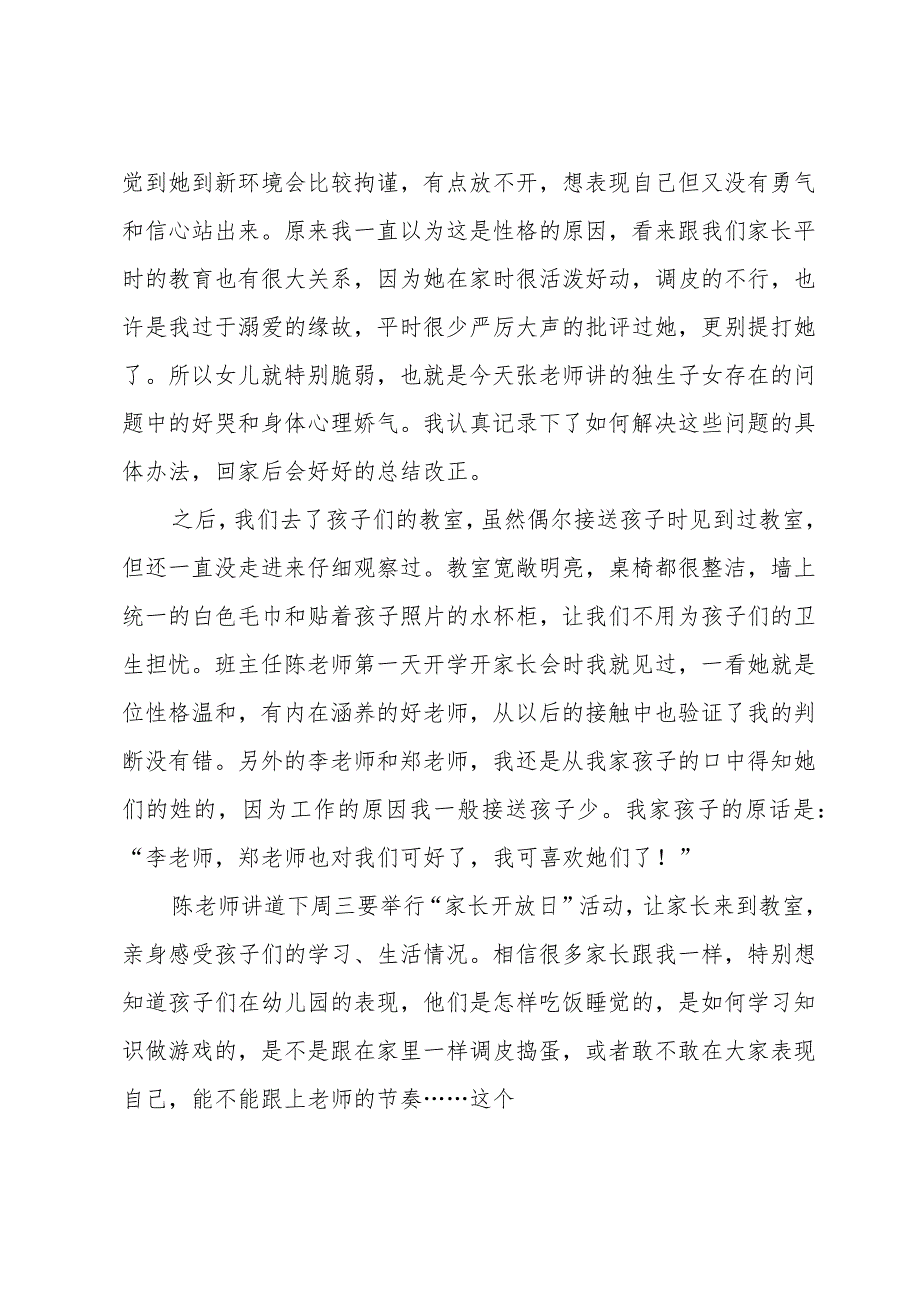 觉到她到新环境会比较拘谨，有点放不开，想表现自己但又没有勇气
和信心站出来。原来我一直以为这是性格的原因，看来跟我们家长平
时的教育也有很大关系，因为她在家时很活泼好动，调皮的不行，也
许是我过于溺爱的缘故，平时很少严厉大声的批评过她，更别提打她
了。所以女儿就特别脆弱，也就是今天张老师讲的独生子女存在的问
题中的好哭和身体心理娇气。我认真记录下了如何解决这些问题的具
体办法，回家后会好好的总结改正。
之后，我们去了孩子们的教室，虽然偶尔接送孩子时见到过教室，
但还一直没走进来仔细观察过。教室宽敞明亮，桌椅都很整洁，墙上
统一的白色毛巾和贴着孩子照片的水杯柜，让我们不用为孩子们的卫
生担忧。班主任陈老师第一天开学开家长会时我就见过，一看她就是
位性格温和，有内在涵养的好老师，从以后的接触中也验证了我的判
断没有错。另外的李老师和郑老师，我还是从我家孩子的口中得知她
们的姓的，因为工作的原因我一般接送孩子少。我家孩子的原话是：
“李老师，郑老师也对我们可好了，我可喜欢她们了！”
陈老师讲道下周三要举行“家长开放日”活动，让家长来到教室，
亲身感受孩子们的学习、生活情况。相信很多家长跟我一样，特别想
知道孩子们在幼儿园的表现，他们是怎样吃饭睡觉的，是如何学习知
识做游戏的，是不是跟在家里一样调皮捣蛋，或者敢不敢在大家表现
自己，能不能跟上老师的节奏……这个